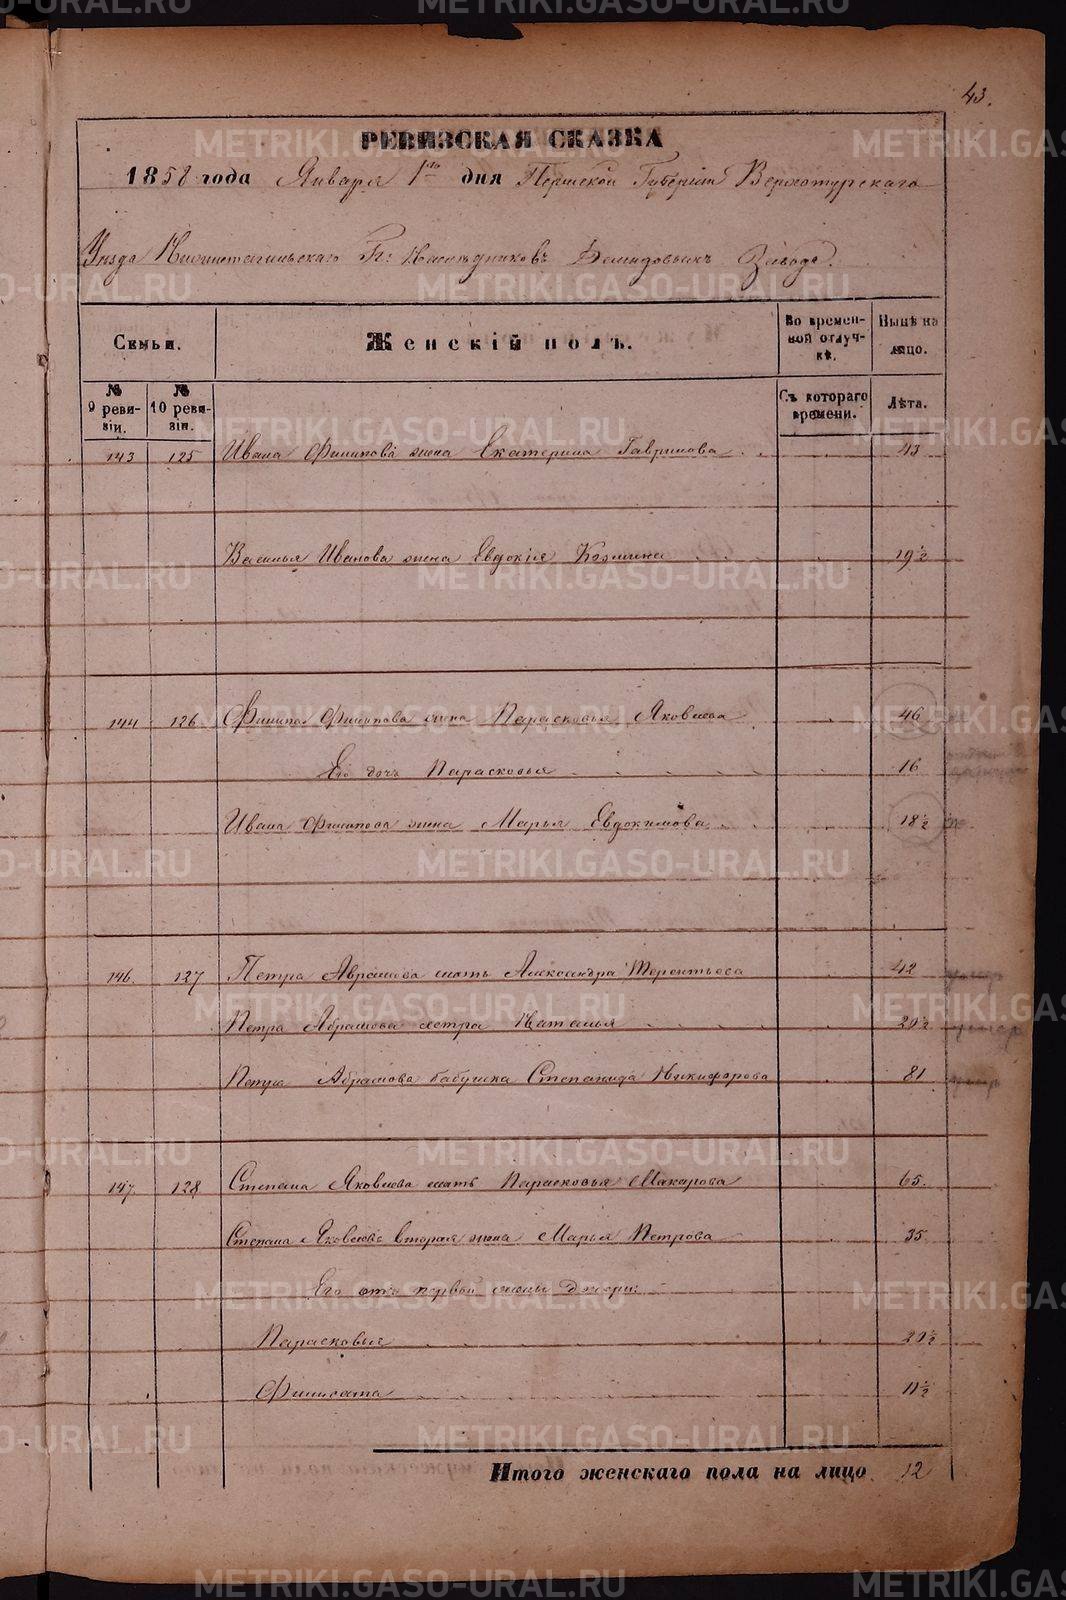 43.
РЕВИЗСКАЯ СКАЗКА
1858 года Января 1го дня Пермской Губерніи Верхотурскаго
Уѣзда Нижнетагильскаго Гг: Наслѣдниковъ Демидовыхъ Завода.
Семьи. Женскій полъ. Во временной отлучкѣ. Нынѣ на лицо.
№ 9 ревизіи. № 10 ревизіи. Съ котораго времени. Лѣта.
143 125 Ивана Филипова жена Екатерина Гаврилова 43
Василья Иванова жена Евдокія Козмина 19½
144 126 Филипа Филипова жена Парасковья Яковлева 46
Его дочь Парасковья 16
Ивана Филипова жена Марья Евдокимова 18½
146. 127 Петра Абрамова мать Александра Терентьева 42
Петра Абрамова сестра Наталья 20½
Петра Абрамова бабушка Степанида Никифорова 81
147. 128 Степана Яковлева мать Парасковья Макарова 65.
Степана Яковлева вторая жена Марья Петрова 35
Его отъ первой жены дочери:
Парасковья 20½
Филисата 11½
Итого женскаго пола на лицо 12
METRIKI.GASO-URAL.RU